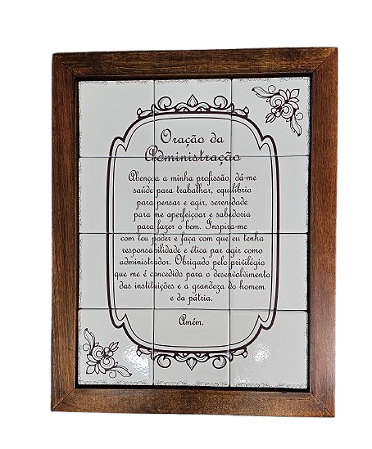 Oração da
Administração
Abençoe a minha profissão, dá-me
saúde para trabalhar, equilíbrio
para pensar e agir, serenidade
para me aperfeiçoar e sabedoria
para fazer o bem. Inspira-me
com teu poder e faça com que eu tenha
responsabilidade e ética par agir como
administrador. Obrigado pelo privilégio
que me é concedido para o desenvolvimento
das instituições e a grandeza do homem
e da pátria.
Amém.